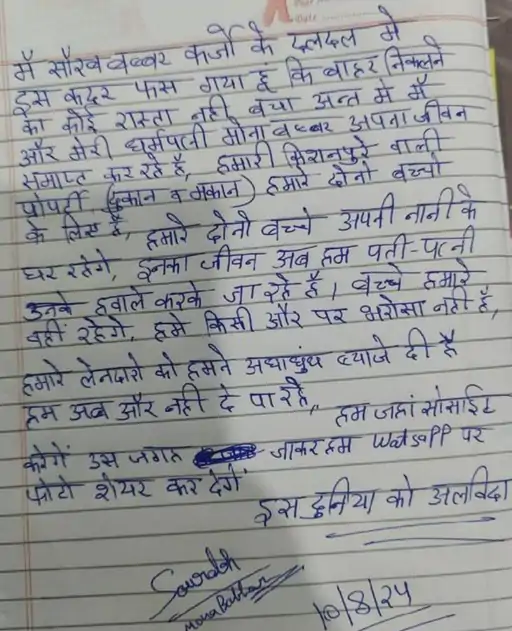 Date
में सौरव बब्बर कर्जो के दलदल मे
इस कदर फस गया हूं कि बाहर निकलने
का कोई रास्ता नही बचा अन्त मे मैं
और मेरी धर्मपत्नी मोना बब्बर अपना जीवन
समाप्त कर रहे है, हमारी किशनपुरे वाली
प्रोपर्टी (दुकान व मकान) हमारे दोनो बच्चो
के लिए है, हमारे दोनो बच्चे अपनी नानी के
घर रहेगे, इनका जीवन अब हम पती-पत्नी
उनके हवाले करके जा रहे है। बच्चे हमारे
वहीं रहेगे, हमे किसी और पर भरोसा नही है,
हमारे लेनदारो को हमने अधाधुंध ब्याजे दी है
हम अब और नही दे पा रहे,, हम जहां सोसाईट
करेगें उस जगह जाकर हम Watsaff पर
फोटो शेयर कर देगें
इस दुनिया को अलविदा
Saurabh
Mona Babbar
10/8/24